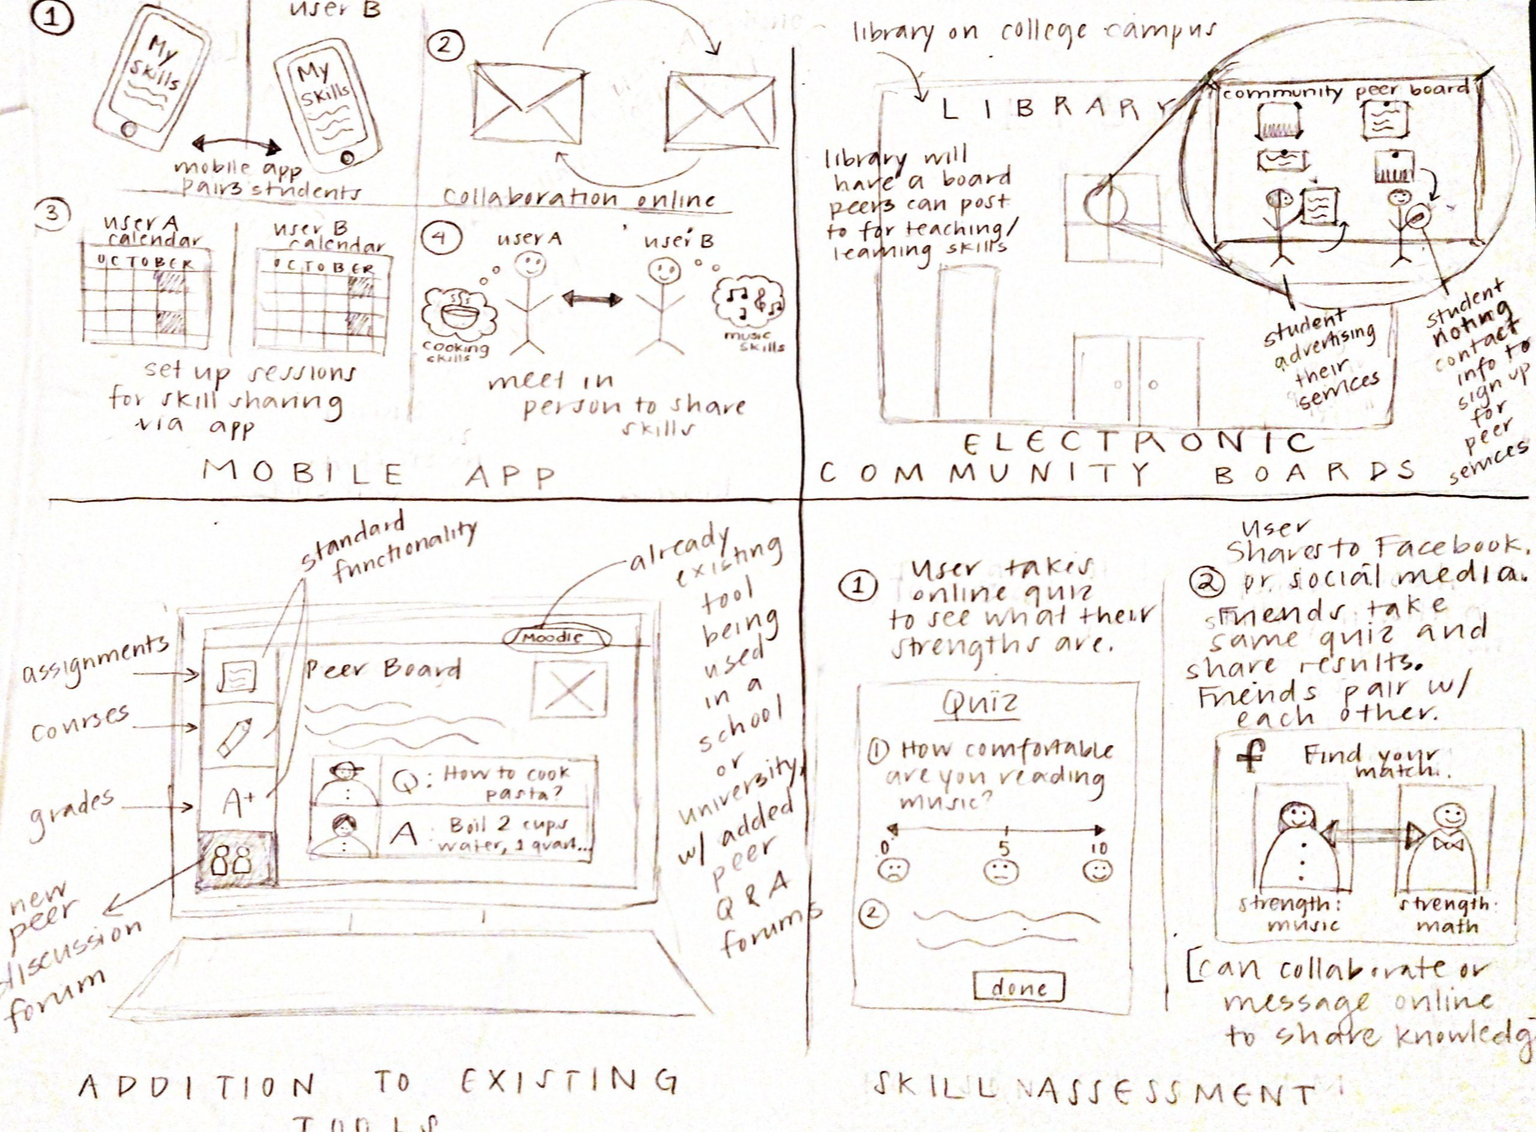 1
user B
My
skills
My
skills
mobile app
pairs students
2
collaboration online
3
user A
calendar
OCTOBER
user B
calendar
OCTOBER
set up sessions
for skill sharing
via app
4
user A
user B
cooking
skills
music
skills
meet in
person to share
skills
MOBILE APP
library on college campus
LIBRARY
library will
have a board
peers can post
to for teaching/
learning skills
community peer board
student
advertising
their
services
student
noting
contact
info to
sign up
for
peer
services
ELECTRONIC
COMMUNITY BOARDS
standard
functionality
already
existing
tool
being
used
in a
school
or
university,
w/ added
peer
Q & A
forums
assignments
courses
grades
new
peer
discussion
forum
Moodle
Peer Board
A+
Q: How to cook
pasta?
A: Boil 2 cups
water, 1 quart...
ADDITION TO EXISTING
TOOLS
1
User takes
online quiz
to see what their
strengths are.
Quiz
1 How comfortable
are you reading
music?
0 5 10
2
done
2
User
Shares to Facebook.
or social media.
Friends take
same quiz and
share results.
Friends pair w/
each other.
f Find your
match.
strength:
music
strength:
math
[can collaborate or
message online
to share knowledg
SKILL ASSESSMENT